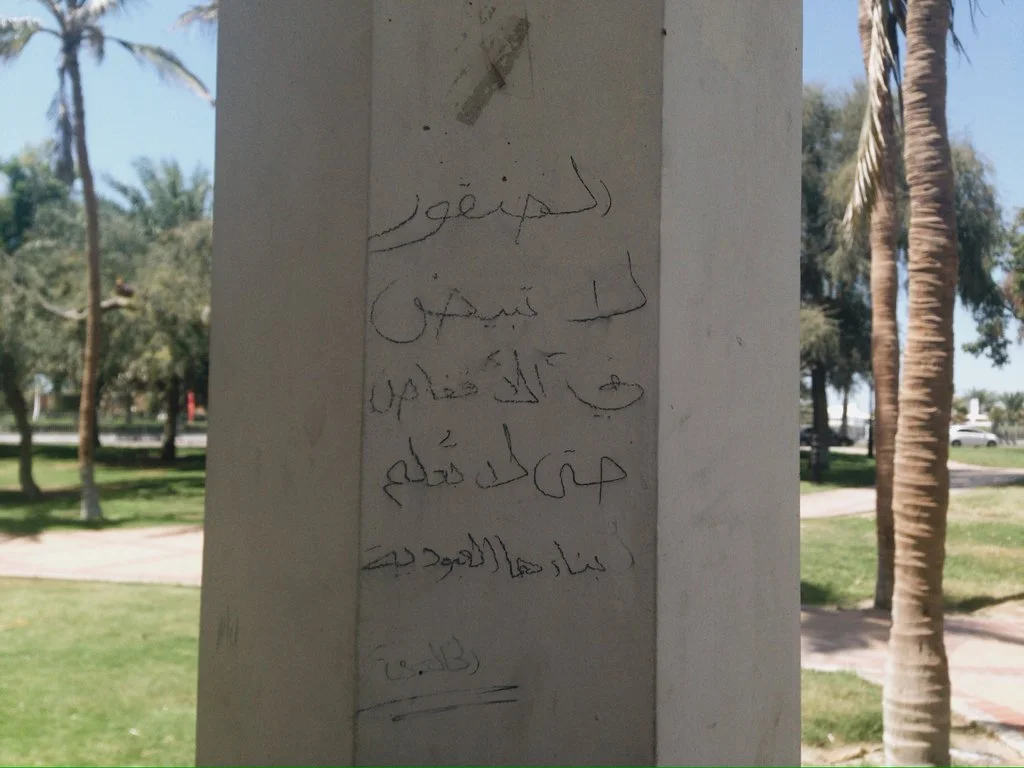 الصقور
لا تبيض
في الأقفاص
حتى لا تُعلم
ابناءها العبودية